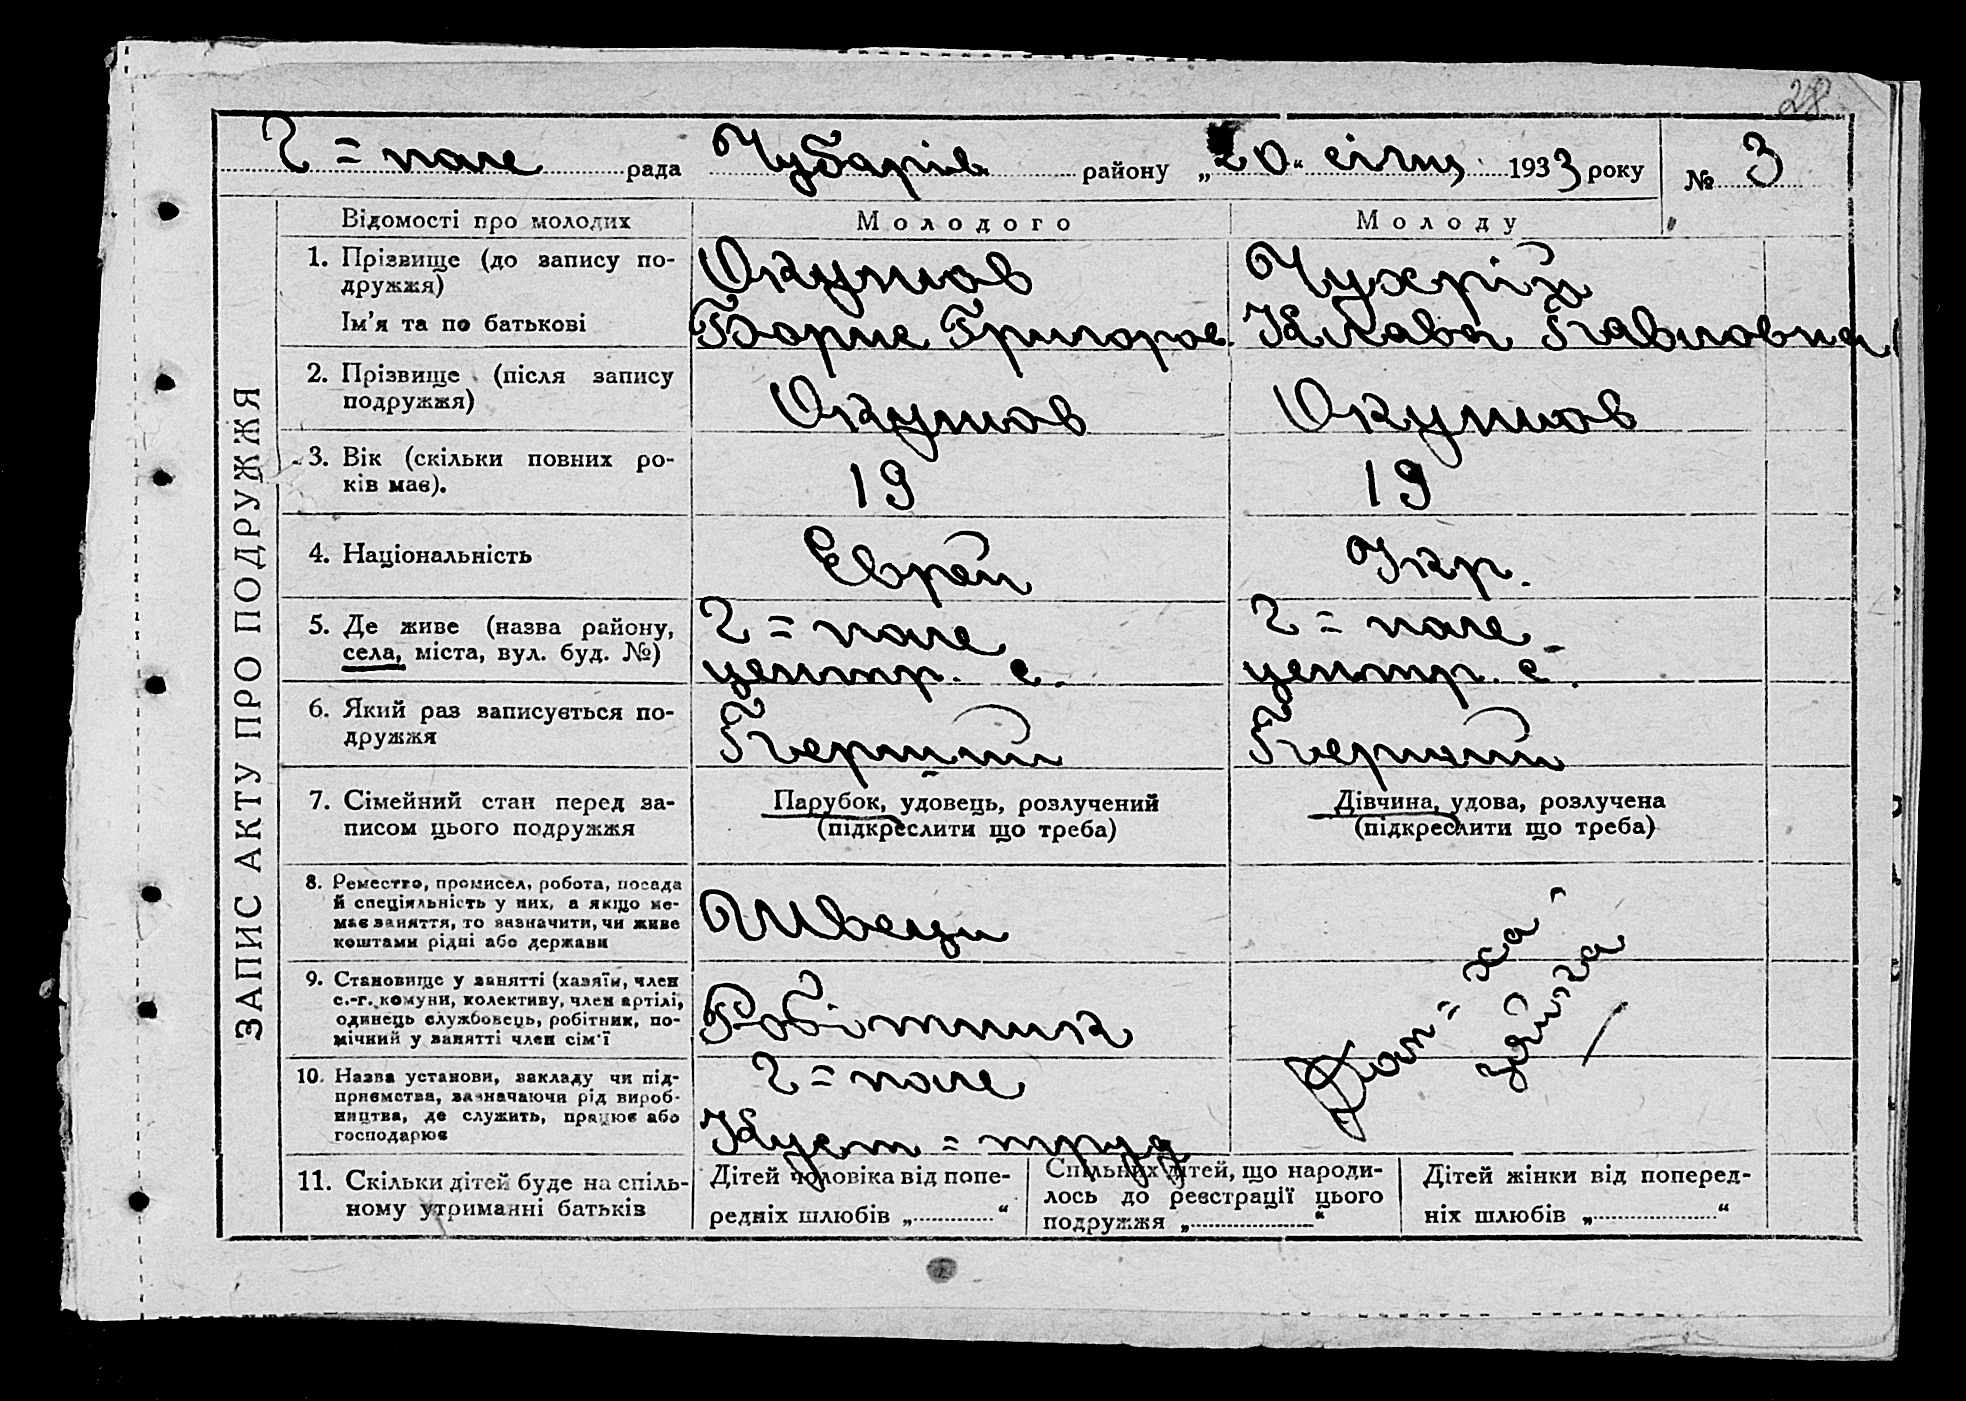 28
Г = поле рада Чубарів району „20“ січня 1933 року № 3
ЗАПИС АКТУ ПРО ПОДРУЖЖЯ
Відомості про молодих Молодого Молоду
1. Прізвище (до запису по-
дружжя)
Окушов Чухрій
Ім’я та по батькові
Борис Григоров. Клава Павловна
2. Прізвище (після запису
подружжя)
Окушов Окушов
3. Вік (скільки повних ро-
ків має).
19 19
4. Національність
Еврей Укр.
5. Де живе (назва району,
села, міста, вул. буд. №)
Г = поле Г = поле
центр. с. центр. с.
6. Який раз записується по-
дружжя
Перший Перший
7. Сімейний стан перед за-
писом цього подружжя
Парубок, удовець, розлучений
(підкреслити що треба)
Дівчина, удова, розлучена
(підкреслити що треба)
8. Ремество, промисел, робота, посада
й спеціяльність у них, а якщо не-
має заняття, то зазначити, чи живе
коштами рідні або держави
Швець
9. Становище у занятті (хазяїн, член
с.-г. комуни, колективу, член артілі,
одинець службовець, робітник, по-
мічний у занятті член сім’ї
Робітник
10. Назва установи, закладу чи під-
приємства, зазначаючи рід вироб-
ництва, де служить, працює або
господарює
Г = поле
Куст = труд
Дом = ха
11. Скільки дітей буде на спіль-
ному утриманні батьків
Дітей чоловіка від попе-
редніх шлюбів „ “
Спільних дітей, що народи-
лось до реєстрації цього
подружжя „ “
Дітей жінки від поперед-
ніх шлюбів „ “